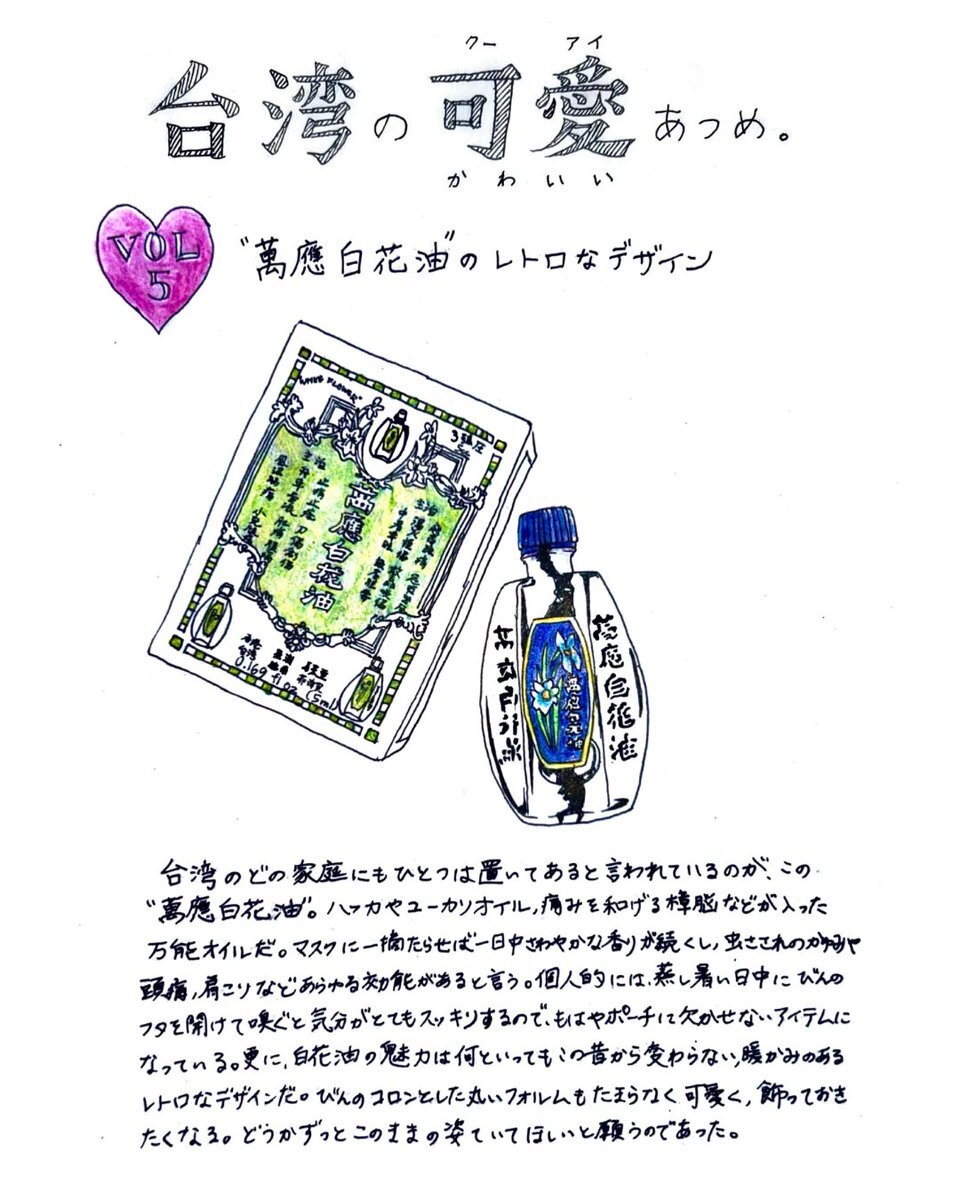 クーアイ
台湾の可愛あつめ。
かわいい
VOL
5
"萬應白花油"のレトロなデザイン
"WHITE FLOWER"
萬應白花油
0.169 fl oz (5ml)
萬應白花油
萬應白花油
台湾のどの家庭にもひとつは置いてあると言われているのが、この
"萬應白花油"。ハッカやユーカリオイル,痛みを和げる樟脳などが入った
万能オイルだ。マスクに一滴たらせば一日中さわやかな香りが続くし,虫さされのかゆみや
頭痛,肩こりなどあらゆる効能があると言う。個人的には、蒸し暑い日中にびんの
フタを開けて嗅ぐと気分がとてもスッキリするので、もはやポーチに欠かせないアイテムに
なっている。更に,白花油の魅力は何といってもこの昔から変わらない,暖かみのある
レトロなデザインだ。びんのコロンとした丸いフォルムもたまらなく可愛く,飾っておき
たくなる。どうかずっとこのままの姿でいてほしいと願うのであった。